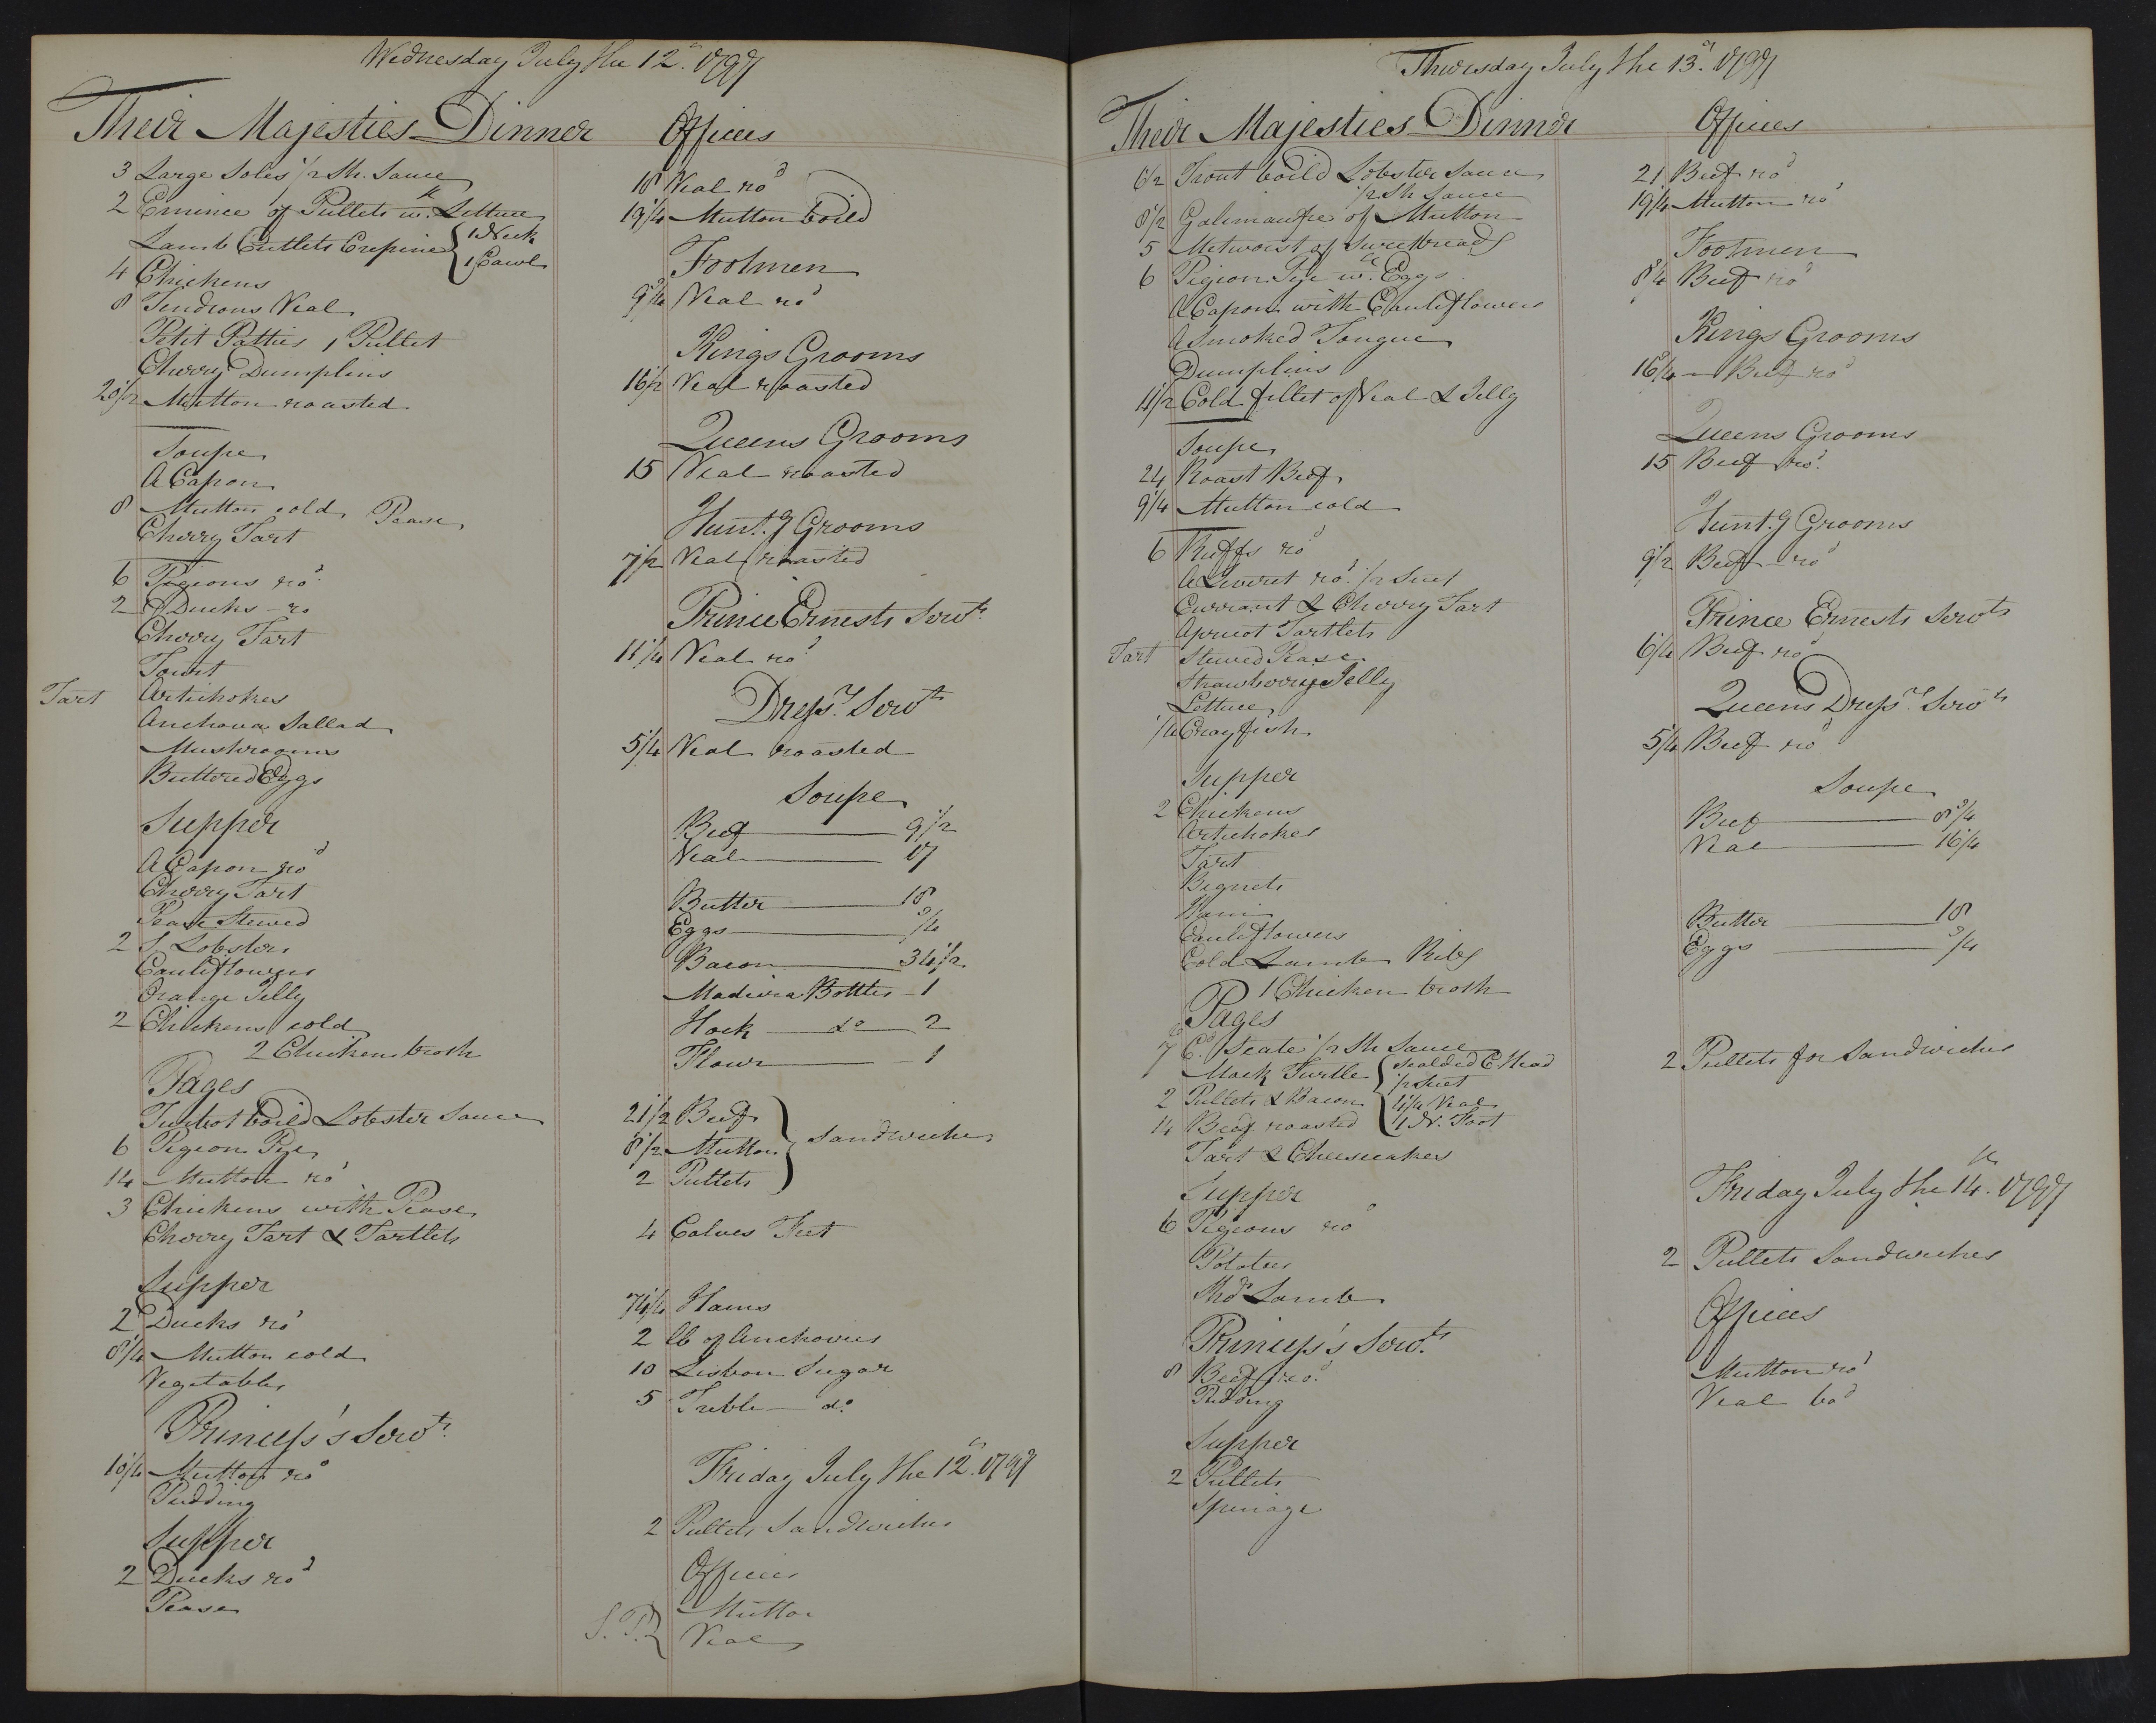 Wednesday July the 12th. 1797
Their Majesties Dinner
3 Large Soles 1/2 Sh. Sauce
2 Emince of Pullets wth. Lettuce
Lamb Cutlets Crepine { 1 Neck
1 Cawl
4 Chickens
8 Tendrons Veal
Petit Patties 1 Pullet
Cherry Dumplins
20 1/2 Mutton roasted
Soupe
A Capon
8 Mutton cold, Pease
Cherry Tart
6 Pigeons rod.
2 Ducks ro
Cherry Tart
Tourt
Tart Artichokes
Anchova Sallad
Mushrooms
Buttered Eggs
Supper
A Capon rod
Cherry Tart
Pease Stewed
2 S. Lobsters
Cauliflowers
Orange Jelly
2 Chickens cold
2 Chicken broth
Pages
Turbot boild Lobster Sauce
6 Pigeon Pye
14 Mutton rod
3 Chickens with Pease
Cherry Tart & Tartlets
Supper
2 Ducks rod
8 1/4 Mutton cold
Vegetables
Princess's Servts.
10 1/4 Mutton rod
Pudding
Supper
2 Ducks rod
Pease
Offices
18 Veal rod
19 1/4 Mutton boild
Footmen
9 3/4 Veal rod
Kings Grooms
16 1/2 Veal roasted
Queens Grooms
15 Veal roasted
Huntg. Grooms
7 1/2 Veal roasted
Prince Ernests Servts.
11 1/4 Veal rod
Dressr. Servts
5 1/4 Veal roasted
Soupe
Beef 9 1/2
Veal 17
Butter 18
Eggs 3/4
Bacon 34 1/2
Madeira Bottles 1
Hock do 2
Flour 1
21 1/2 Beef
8 1/2 Mutton } Sandwiches
2 Pullets
4 Calves Feet
74 1/4 Hams
2 lb of Anchovies
10 Lisbon Sugar
5 Treble do.
Friday July the 12th. 1797
2 Pullets Sandwiches
Offices
Mutton
S.P. { Veal
Thursday July the 13th. 1797
Their Majesties Dinner
6 1/2 Trout boild Lobster Sauce
1/2 Sh Sauce
8 1/2 Galimaufre of Mutton
5 Metworst of Sweetbreads
6 Pigeon Pye wth. Eggs
A Capon with Cauliflowers
A Smoked Tongue
Dumplins
11 1/2 Cold fillet of Veal & Jelly
Soupe
24 Roast Beef
9 1/4 Mutton cold
6 Ruffs rod
A Leveret rod. 1/2 Suet
Currant & Cherry Tart
Apricot Tartlets
Tart Stewed Pease
Strawberry Jelly
Lettuce
1/4 Crayfish
Supper
2 Chickens
Artichokes
Tart
Bignets
Ham
Cauliflowers
Cold Lamb Ribs
1 Chicken broth
Pages
7 Cd. Scate 1/2 Sh Sauce
Mock Turtle { Scalded C Head
1/2 Suet
2 Pullets & Bacon { 4 1/4 Veal
14 Beef roasted { 1 N. Foot
Tart & Cheesecakes
Supper
6 Pigeons rod
Potatoes
Shdr Lamb
Princess's Servts.
8 Beef rod.
Pudding
Supper
2 Pullets
Spinage
Offices
21 Beef rod
19 1/4 Mutton rod
Footmen
8 3/4 Beef rod
Kings Grooms
16 3/4 Beef rod
Queens Grooms
15 Beef rod.
Huntg. Grooms
9 1/2 Beef rod
Prince Ernests Servts
6 1/4 Beef rod
Queens Dressr. Servts
5 1/4 Beef rod
Soupe
Beef 8 3/4
Veal 16 1/4
Butter 18
Eggs 3/4
2 Pullets for Sandwiches
Friday July the 14th. 1797
2 Pullets Sandwiches
Offices
Mutton rod
Veal bod